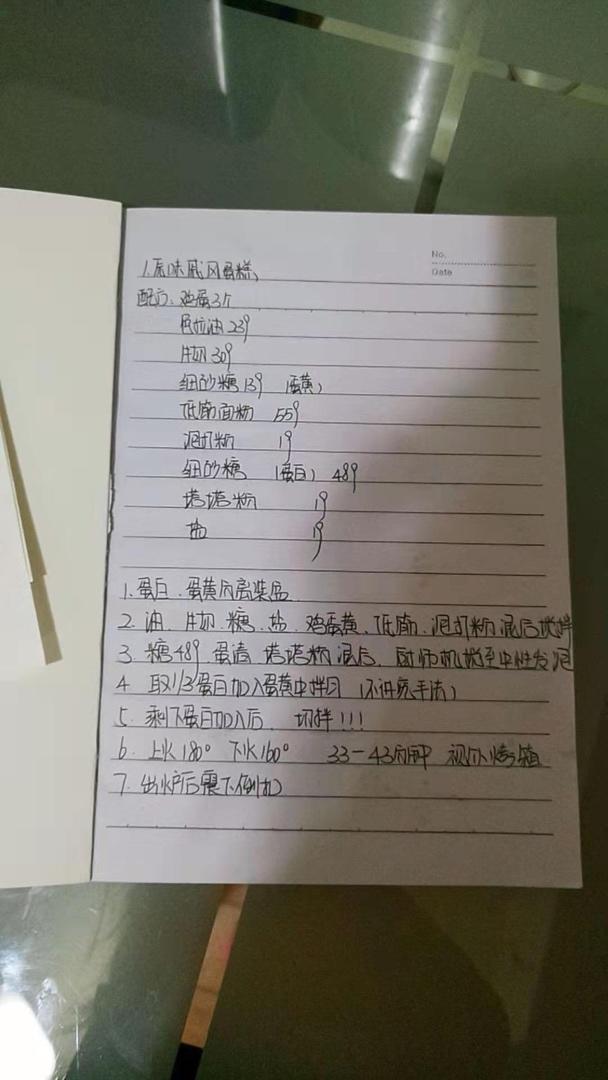 No.
Date
1.原味戚风蛋糕,
配方: 鸡蛋3个
色拉油 23g
牛奶 30g
细砂糖 13g (蛋黄)
低筋面粉 55g
泡打粉 1g
细砂糖 (蛋白) 48g
塔塔粉 1g
盐 1g
1. 蛋白、蛋黄分离装品
2. 油、牛奶、糖、盐、鸡蛋黄、低筋、泡打粉混后搅拌
3. 糖48g 蛋清 塔塔粉混后, 厨师机搅至中性发泡
4. 取1/3蛋白加入蛋黄中拌匀 (不讲究手法)
5. 剩下蛋白加入后, 切拌!!!
6. 上火180° 下火160° 33-43分钟 视小烤箱
7. 出炉后震下倒扣